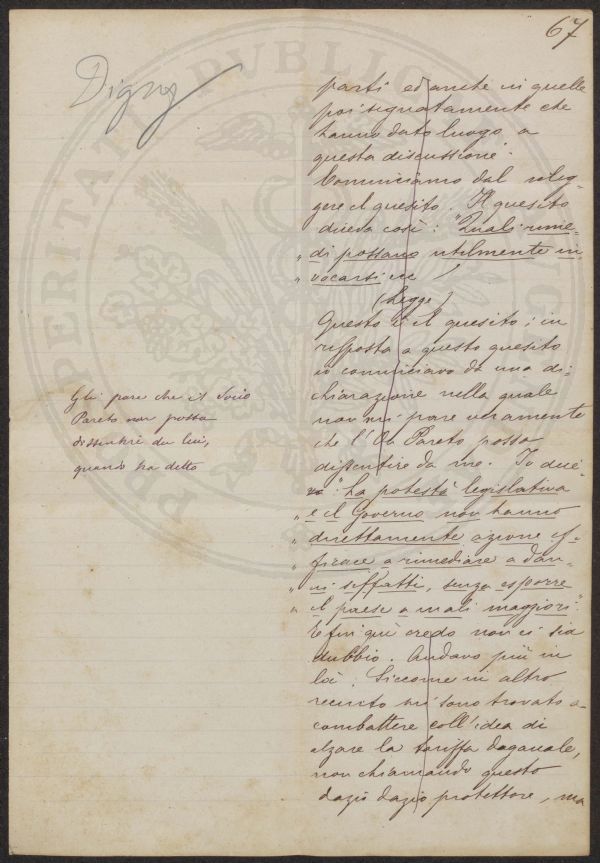 67
Digny
parti ed anche in quelle
poi segnatamente che
hanno dato luogo a
questa discussione.
Cominciamo dal rileg-
gere il quesito. Il quesito
diceva così: "Quali rime-
" di possano utilmente in-
" vocarsi
(Legge)
Questo è il quesito; in
risposta a questo quesito
io cominciavo da una di-
chiarazione nella quale
non mi pare veramente
che l'On Pareto possa
dissentire da me. Io dice-
va "la potestà legislativa
" e il Governo non hanno
" direttamente azione ef-
" ficace a rimediare a dan-
" ni siffatti, senza esporre
" il paese a mali maggiori."
E fin qui credo non ci sia
dubbio. Andavo più in
là. Siccome in altro
recinto mi sono trovato a
combattere coll'idea di
alzare la tariffa daganale,
non chiamando questo
dazio dazio protettore, ma
Gli pare che il Socio
Pareto non possa
dissentire da lui,
quando ha detto